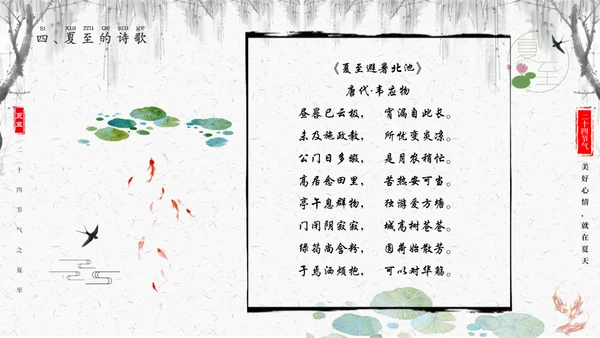 sì xià zhì de shī gē
四、夏至的诗歌
夏至
《夏至避暑北池》
唐代·韦应物
昼晷已云极， 宵漏自此长。
未及施政教， 所忧变炎凉。
公门日多暇， 是月农稍忙。
高居念田里， 苦热安可当。
亭午息群物， 独游爱方塘。
门闭阴寂寂， 城高树苍苍。
绿筠尚含粉， 圆荷始散芳。
于焉洒烦抱， 可以对华觞。
夏至
二十四节气之夏至
二十四节气
美好心情，就在夏天